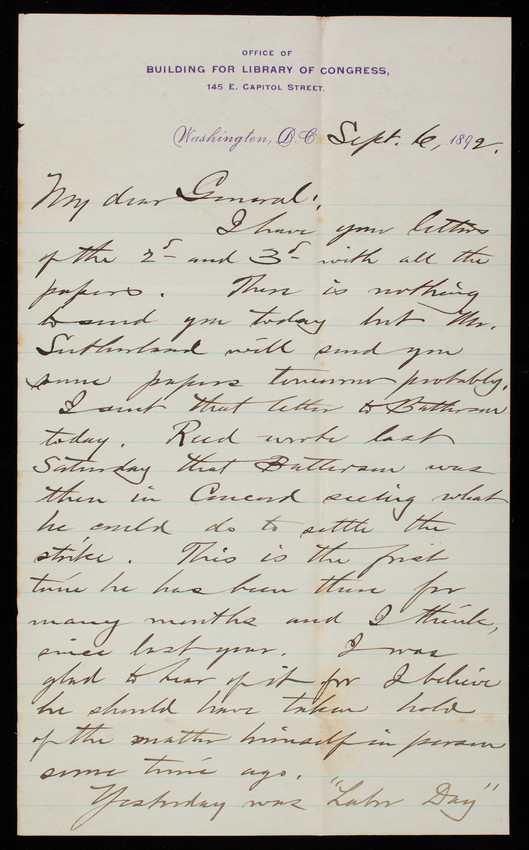 OFFICE OF
BUILDING FOR LIBRARY OF CONGRESS,
145 E. CAPITOL STREET.
Washington, D.C. Sept. 6, 1892.
My dear General:
I have your letters
of the 2d and 3d with all the
papers. There is nothing
to send you today but Mr.
Sutherland will send you
some papers tomorrow probably.
I sent that letter to Batterson
today. Reed wrote last
Saturday that Batterson was
then in Concord seeing what
he could do to settle the
strike. This is the first
time he has been there for
many months and I think,
since last year. I was
glad to hear of it for I believe
he should have taken hold
of the matter himself in person
some time ago.
Yesterday was "Labor Day"